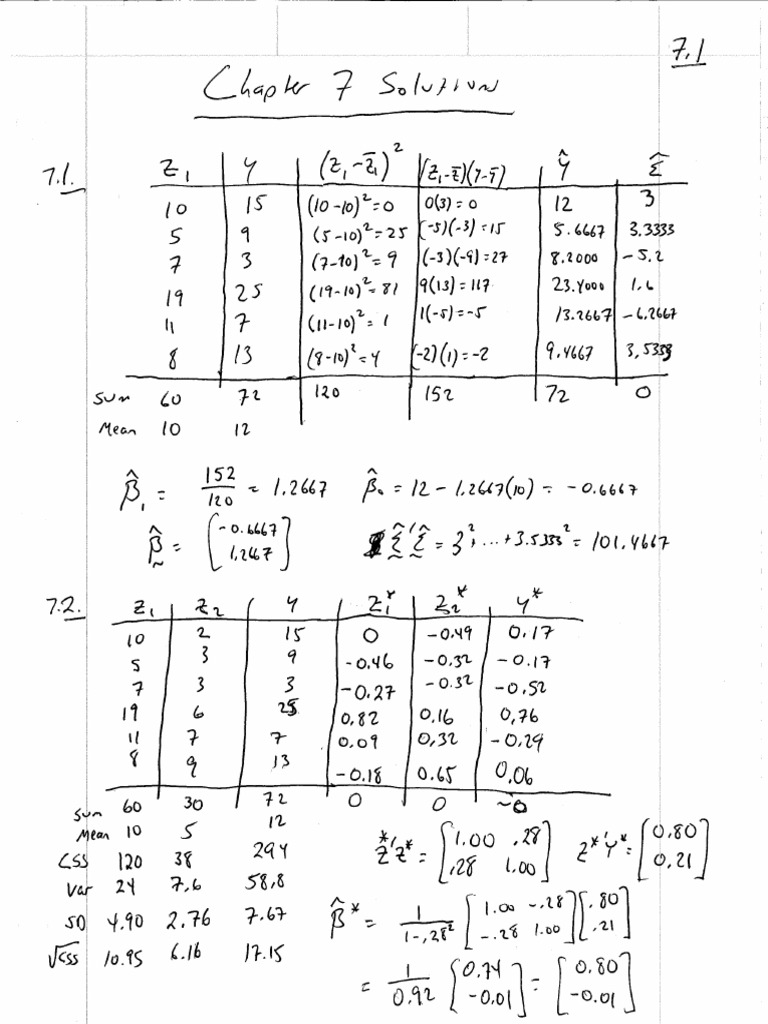 7.1
Chapter 7 Solution
7.1. Z₁ Y (Z₁-Z̄₁)² (Z₁-Z̄)(Y-Ȳ) Ŷ ε̂
10 15 (10-10)²=0 0(3)=0 12 3
5 9 (5-10)²=25 (-5)(-3)=15 5.6667 3.3333
7 3 (7-10)²=9 (-3)(-9)=27 8.2000 -5.2
19 25 (19-10)²=81 9(13)=117 23.4000 1.6
11 7 (11-10)²=1 1(-5)=-5 13.2667 -6.2667
8 13 (8-10)²=4 (-2)(1)=-2 9.4667 3.5333
Sum 60 72 120 152 72 0
Mean 10 12
β̂₁ = 152/120 = 1.2667 β̂₀ = 12 - 1.2667(10) = -0.6667
β̂ = [-0.6667 1.2667] ε̂'ε̂ = 3² + ... + 3.5333² = 101.4667
7.2. Z₁ Z₂ Y Z₁* Z₂* Y*
10 2 15 0 -0.49 0.17
5 3 9 -0.46 -0.32 -0.17
7 3 3 -0.27 -0.32 -0.52
19 6 25 0.82 0.16 0.76
11 7 7 0.09 0.32 -0.29
8 9 13 -0.18 0.65 0.06
Sum 60 30 72 0 0 ~0
Mean 10 5 12
CSS 120 38 294
Var 24 7.6 58.8
SD 4.90 2.76 7.67
√CSS 10.95 6.16 17.15
Z*'Z* = [1.00 .28 .28 1.00] Z*'Y* = [0.80 0.21]
β̂* = 1/(1-.28²) [1.00 -.28 -.28 1.00] [.80 .21]
= 1/0.92 [0.74 -0.01] = [0.80 -0.01]